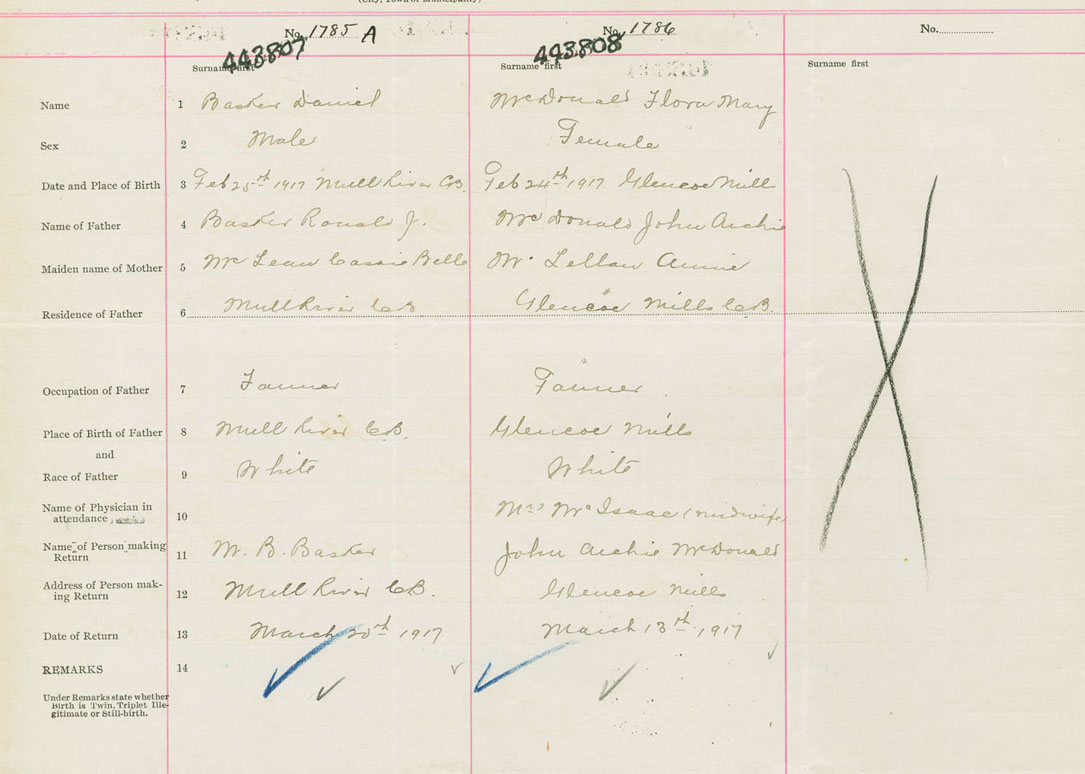 (City, Town or Municipality)
No. 1785 A No. 1786 No.
443807 443808
Surname first Surname first Surname first
Name 1 Basker Daniel McDonald Flora Mary
Sex 2 Male Female
Date and Place of Birth 3 Feb 25th 1917 Mull River C.B. Feb 24th 1917 Glencoe Mill
Name of Father 4 Basker Ronald J. McDonald John Archie
Maiden name of Mother 5 McLean Cassie Belle McLellan Annie
Residence of Father 6 Mull River C.B. Glencoe Mills C.B.
Occupation of Father 7 Farmer Farmer
Place of Birth of Father 8 Mull River C.B. Glencoe Mills
and
Race of Father 9 White White
Name of Physician in
attendance 10 Mrs McIsaac (midwife)
Name of Person making
Return 11 M. B. Basker John Archie McDonald
Address of Person mak-
ing Return 12 Mull River C.B. Glencoe Mills
Date of Return 13 March 20th 1917 March 13th 1917
REMARKS 14
Under Remarks state whether
Birth is Twin, Triplet Ille-
gitimate or Still-birth.